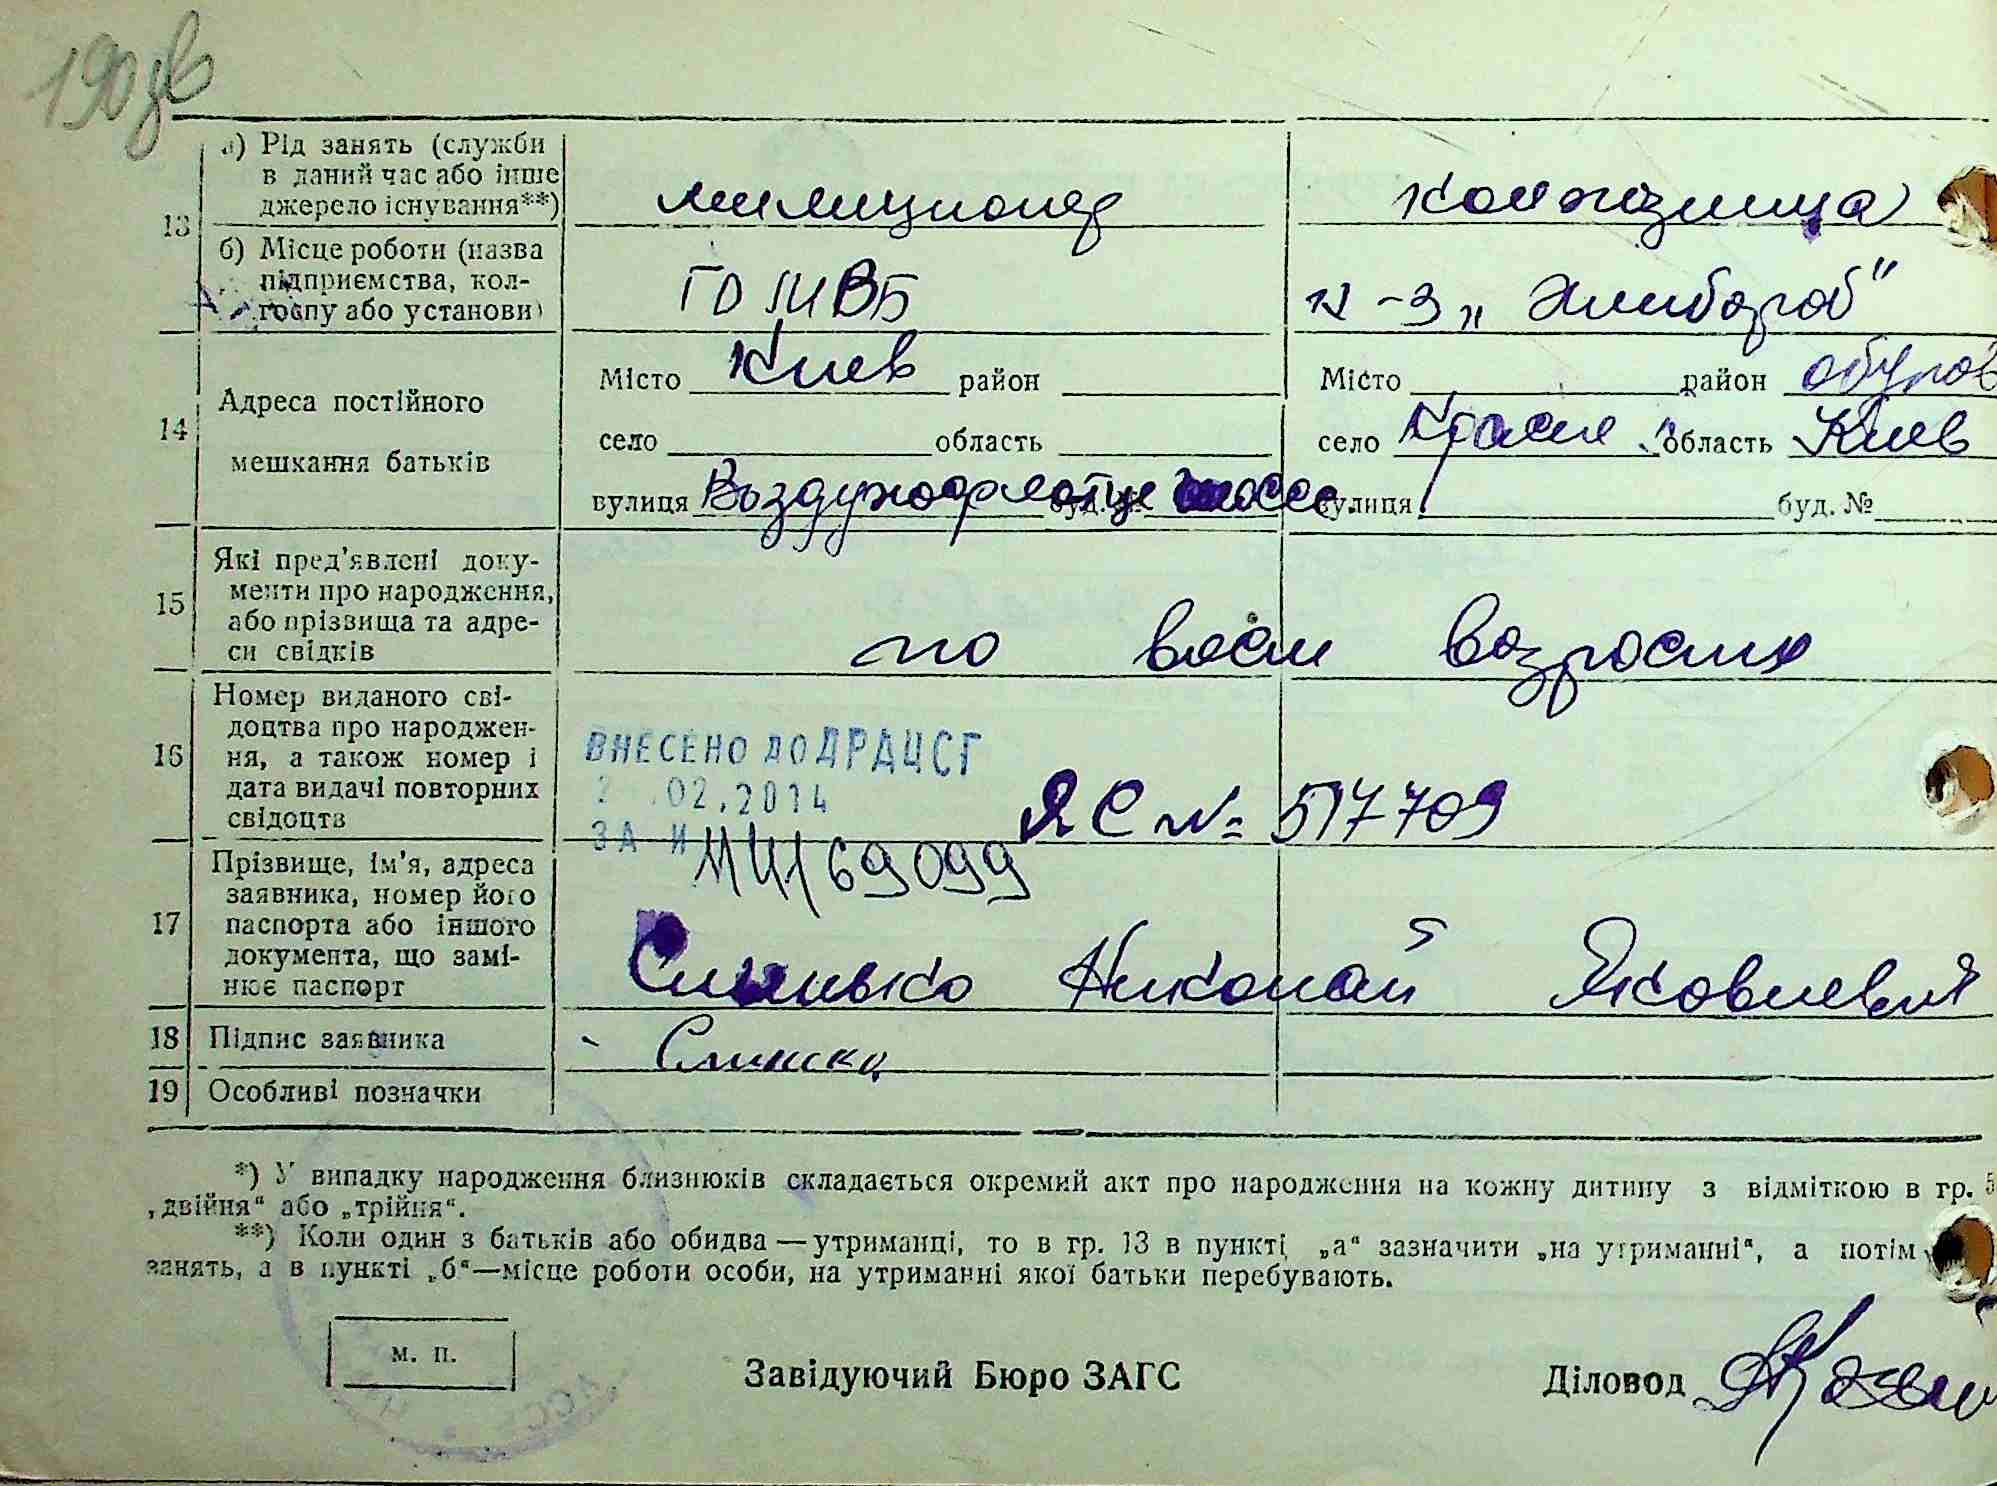 190зв
13
а) Рід занять (служби
в даний час або інше
джерело існування**)
милиционер
колхозница
б) Місце роботи (назва
підприємства, кол-
госпу або установи)
к-з „Хлибороб"
14
Адреса постійного
мешкання батьків
Місто Киев район
село область
вулиця Воздухофлотске буд. № шоссе
Місто район обухов
село Красне область Киев
вулиця буд. №
15
Які пред'явлені доку-
менти про народження,
або прізвища та адре-
си свідків
по
16
Номер виданого сві-
доцтва про народжен-
ня, а також номер і
дата видачі повторних
свідоцтв
ВНЕСЕНО ДО ДРАЦСГ
2 .02.2014
ЗА И
ЯС № 517709
69099
17
Прізвище, ім'я, адреса
заявника, номер його
паспорта або іншого
документа, що замі-
нює паспорт
Николай Яковлевич
18 Підпис заявника
19 Особливі позначки
*) У випадку народження близнюків складається окремий акт про народження на кожну дитину з відміткою в гр. 5
„двійня“ або „трійня“.
**) Коли один з батьків або обидва — утриманці, то в гр. 13 в пункті „а“ зазначити „на утриманні“, а потім
занять, а в пункті „б“—місце роботи особи, на утриманні якої батьки перебувають.
м. п.
Завідуючий Бюро ЗАГС
Діловод